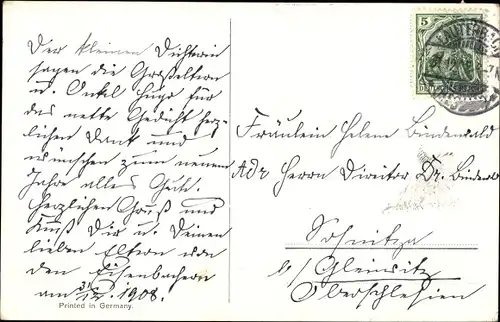 Der kleinen Dichterin
sagen die Großeltern
u. Onkel Hugo für
das nette Gedicht herz-
lichen Dank und
wünschen zum neuen
Jahre alles Gute.
Herzlichen Gruß und
Kuß Dir u. Deinen
lieben Eltern von
den Eisenbachern
am 31/12. 1908.
Printed in Germany.
5
DEUTSCHES REICH
LAUTERBA
Fräulein Helene Bindewald
Adr Herrn Direktor Dr. Bindewald
Sosnitza
b/Gleiwitz
Oberschlesien